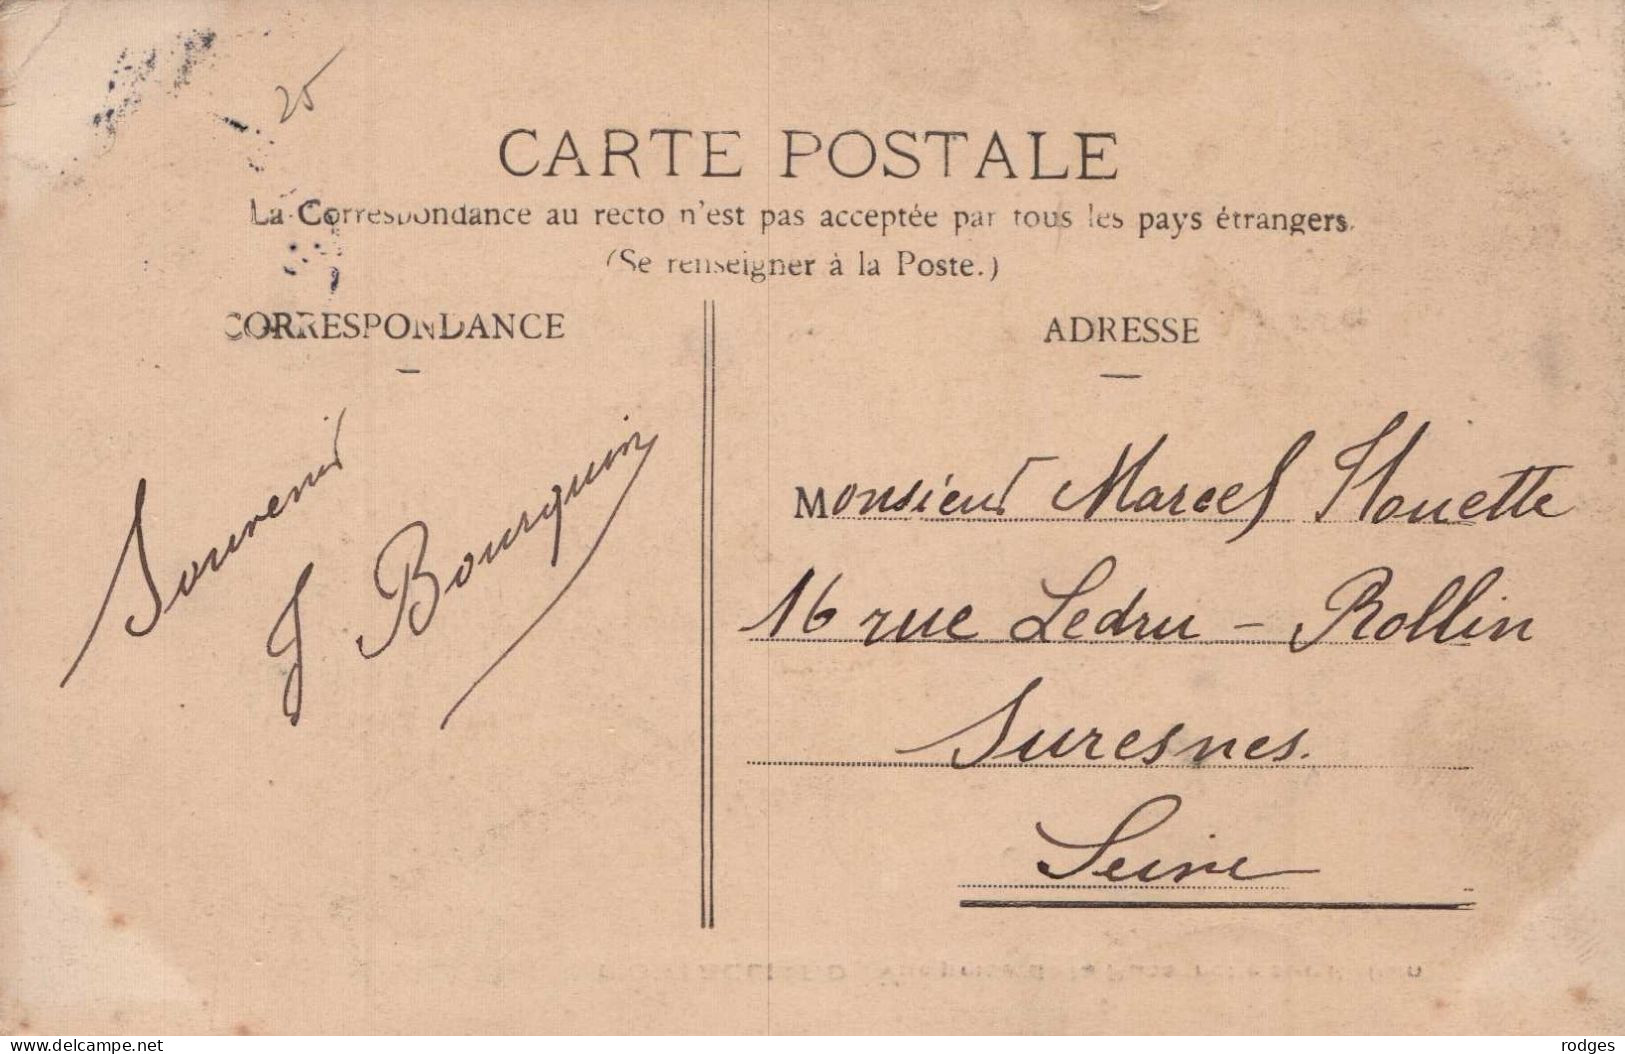 25
CARTE POSTALE
La Correspondance au recto n'est pas acceptée par tous les pays étrangers.
(Se renseigner à la Poste.)
CORRESPONDANCE
Souvenir
J Bourquin
ADRESSE
Monsieur Marcel Houette
16 rue Ledru - Rollin
Suresnes.
Seine
www.delcampe.net
rodges